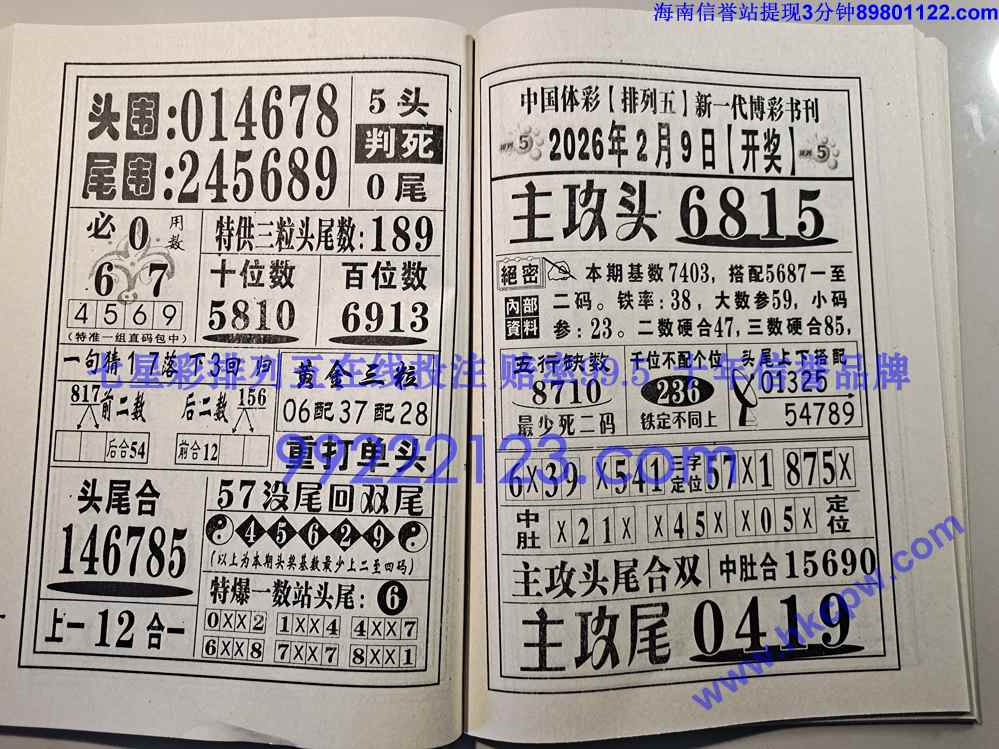 海南信誉站提现3分钟89801122.com
头围:014678
尾围:245689
5头
判死
0尾
必0用数
6 7
4 5 6 9
(特准一组直码包中)
特供三粒头尾数:189
十位数
5810
百位数
6913
一句猜1 7落 下3回归
817 前二数 后二数 156
后合54 前合12
黄金三粒
06配37配28
重打单头
七星彩排列五在线投注 赔率99.5 十年信誉品牌
99222123.com
头尾合
146785
上一12合一
57没尾回双尾
4 5 6 2 9
(以上为本期头奖基数最少上二至四码)
特爆一数站头尾:6
0××2 1××4 4××7
6××8 7××7 8××1
中国体彩【排列五】新一代博彩书刊
排列5 2026年2月9日【开奖】排列5
主攻头 6815
絕密
內部資料
本期基数7403,搭配5687一至
二码。铁率:38,大数参59,小码
参:23。二数硬合47,三数硬合85,
五行缺数
8710
最少死二码
千位不配个位
236
铁定不同上
头尾上下搭配
01325
54789
6×39 ×541 三字定位 57×1 875×
中肚 ×21× ×45× ×05× 定位
主攻头尾合双 中肚合15690
主攻尾 0419
www.hkcpw.com